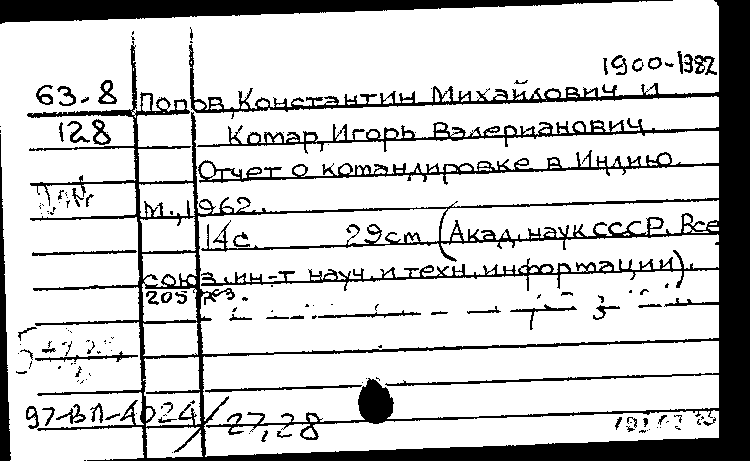 1900-1982
63-8 Попов, Константин Михайлович и
128 Комар, Игорь Валерианович.
Отчет о командировке в Индию.
М., 1962.
14с. 29см. (Акад. наук СССР. Все
союз. ин-т науч. и техн. информации).
205 экз.
97-ВП-4024/27,28